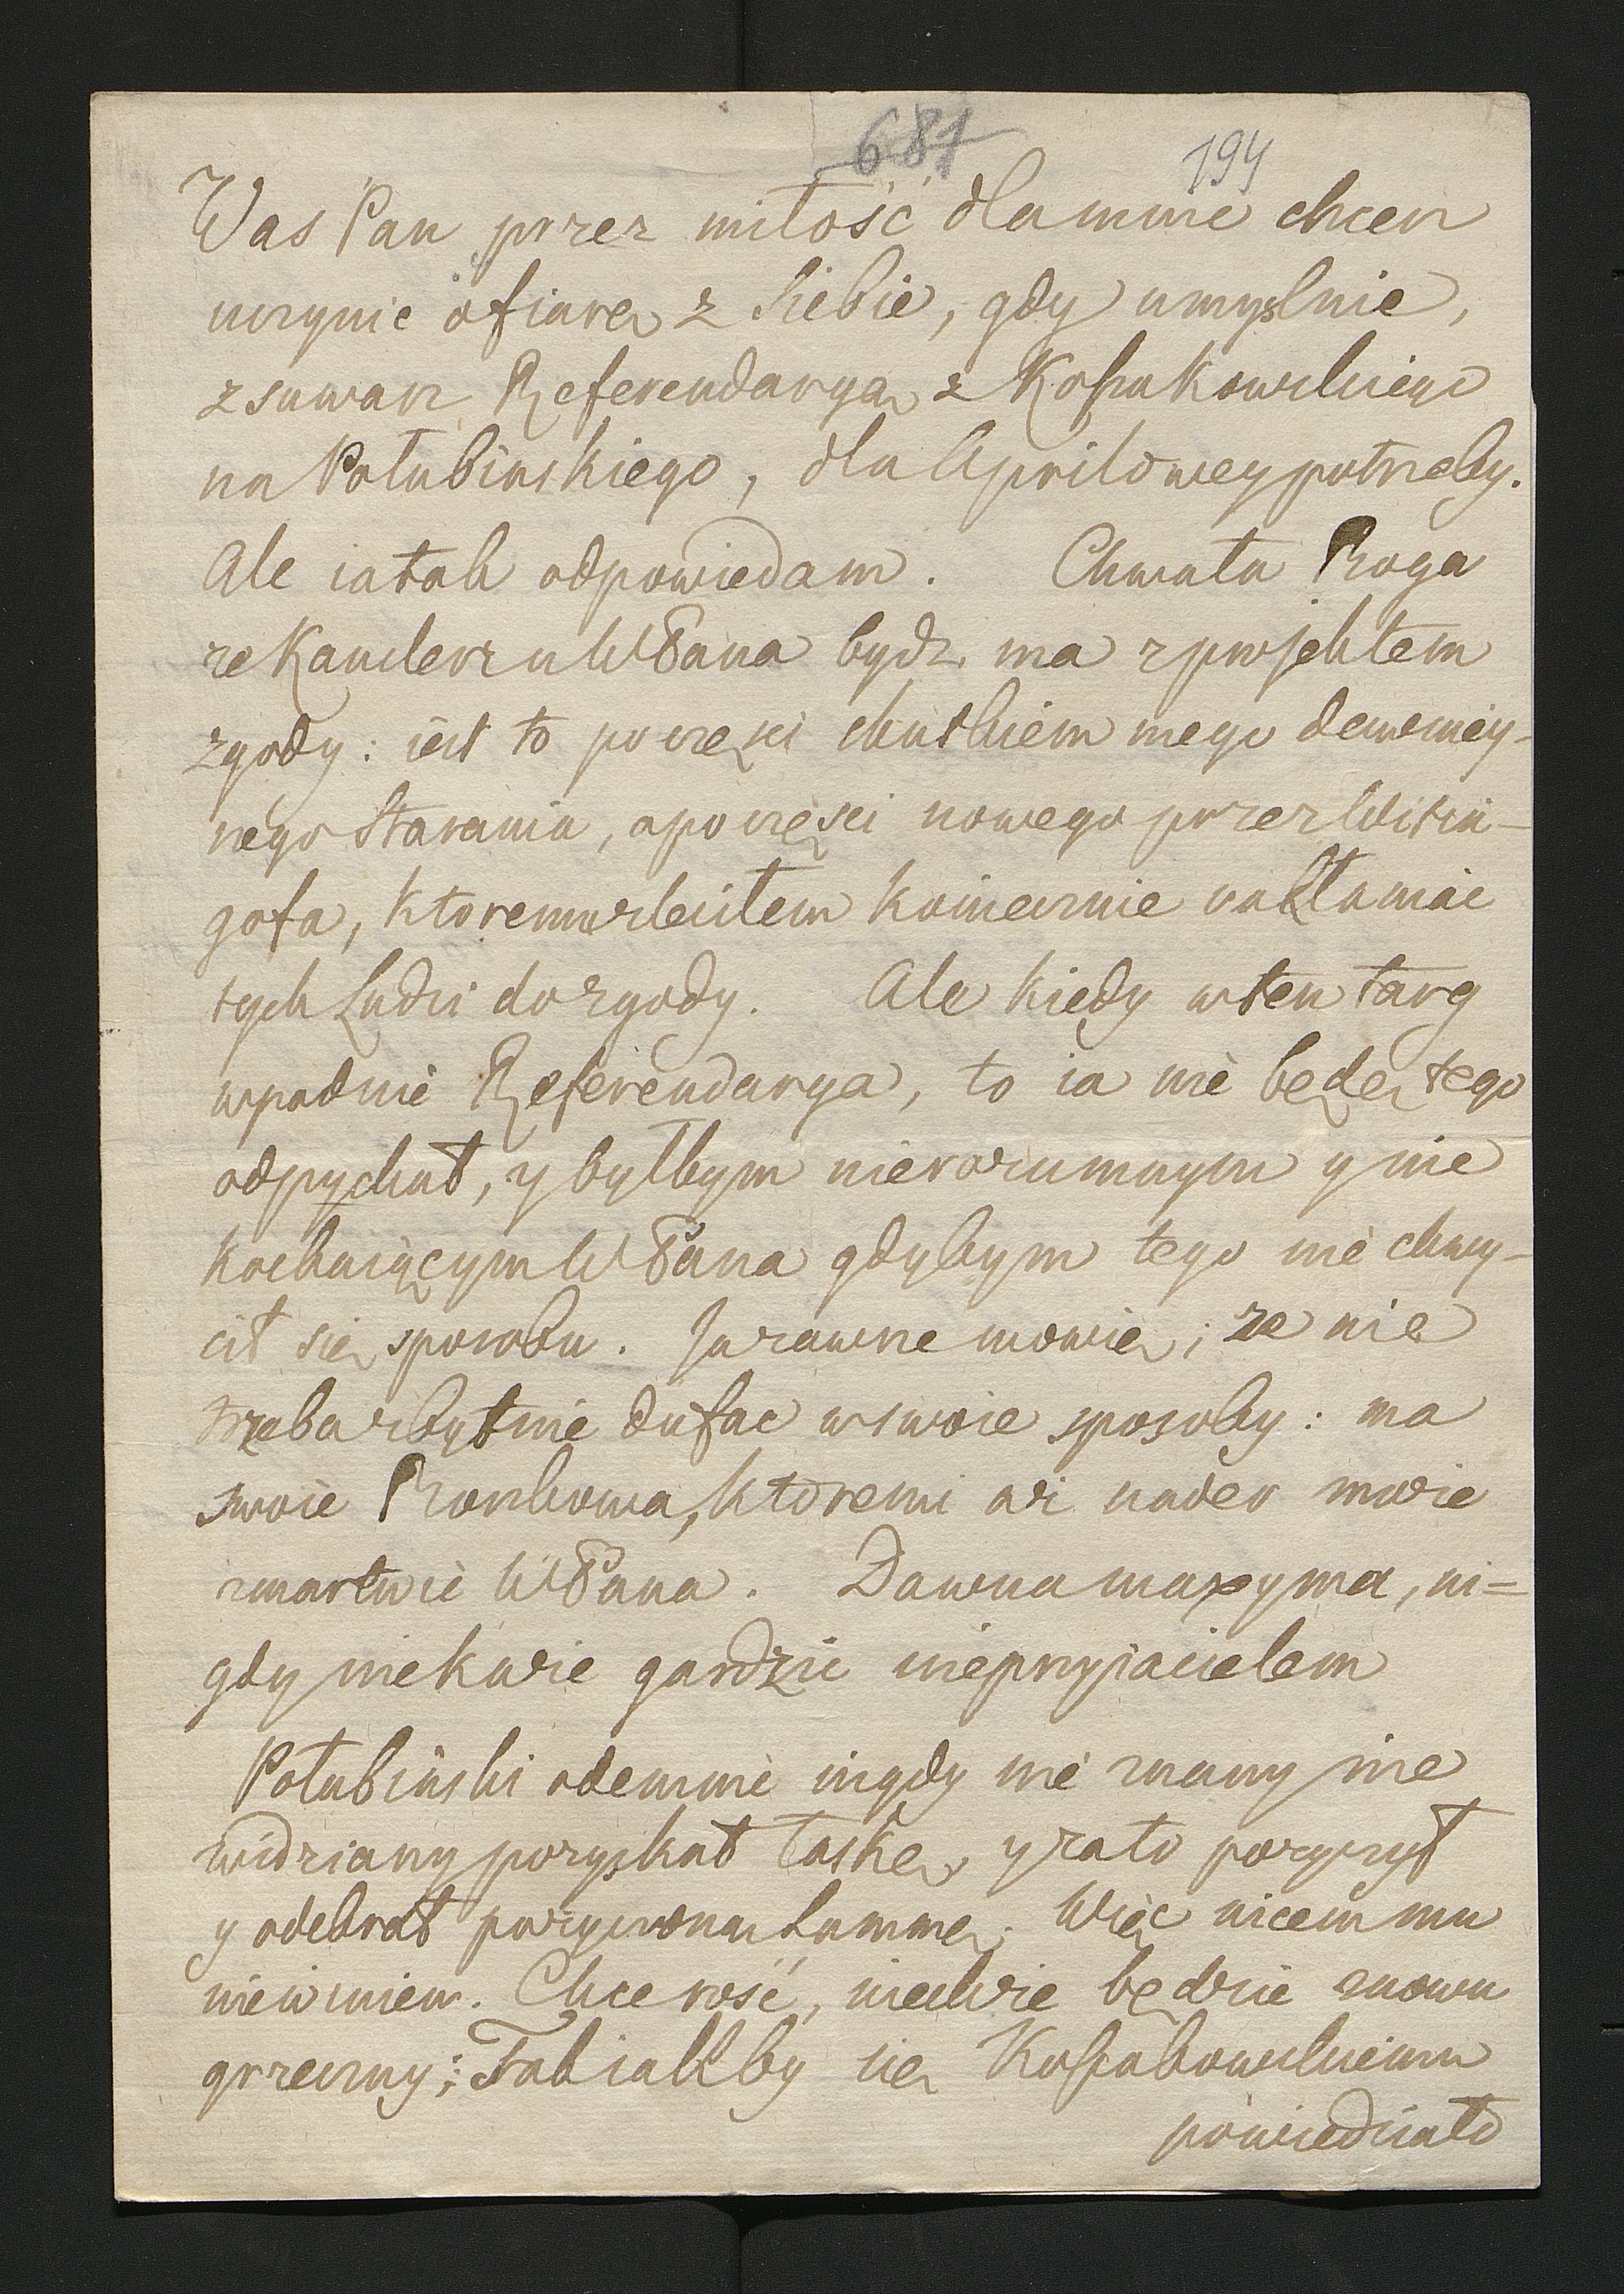 681 194
Was Pan przez miłość dla mnie chcesz
uczynic ofiarę z Siebie, gdy umyslnie,
zsuwasz Referendarya z Kossakowskiego
na Połubinskiego, dla Aprilowey potrzeby.
Ale ia tak odpowiedam. Chwała Boga
ze Kanclerz u WPana bydz ma z projektem
zgody: iest to po częsci skutkiem mego dawniey-
szego starania, a po częsci nowego przez
gofa, ktoremu zleciłem koniecznie nakłaniac
tych Ludzi do zgody. Ale kiedy w ten targ
wpadnie Referendarya, to ia nie będę tego
odpychał, y byłbym nierozumnym y nie
kochaiącym WPana gdybym tego nie chwy-
cił się sposobu. Ja zawsze mowię; ze nie
trzeba zbytnie dufac w swoie sposoby: ma
swoie Bonkowa, ktoremi az nader moze
zmartwic WPana. Dawna maxyma, ni=
gdy niekaze gardzic nieprzyjacielem
Połubiński odemnie nigdy nie znany nie
widziany pozyskał łaskę, y za to pozyczył
y odebrał pozyczoną Summę. Więc nicem mu
nie winien. Chce rość, niechze będzie znowu
grzeczny; Tak iakby się Kossakowskiemu
powiedziało